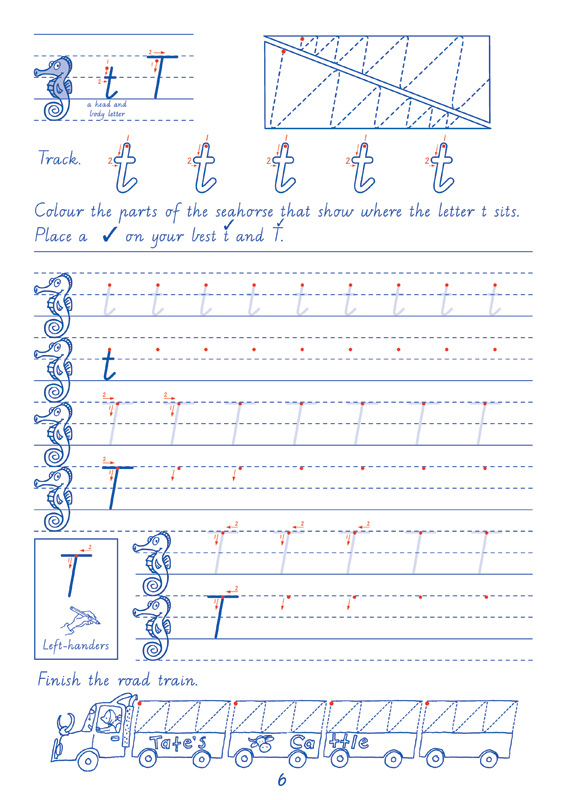 2 1 2 1
t T
a head and
body letter
Track. t t t t t
Colour the parts of the seahorse that show where the letter t sits.
Place a ✓ on your best t and T.
t t t t t t t t t
t
T T T T T T T
T
T T T T T
T
T
Left-handers
Finish the road train.
Tate's Cattle
6